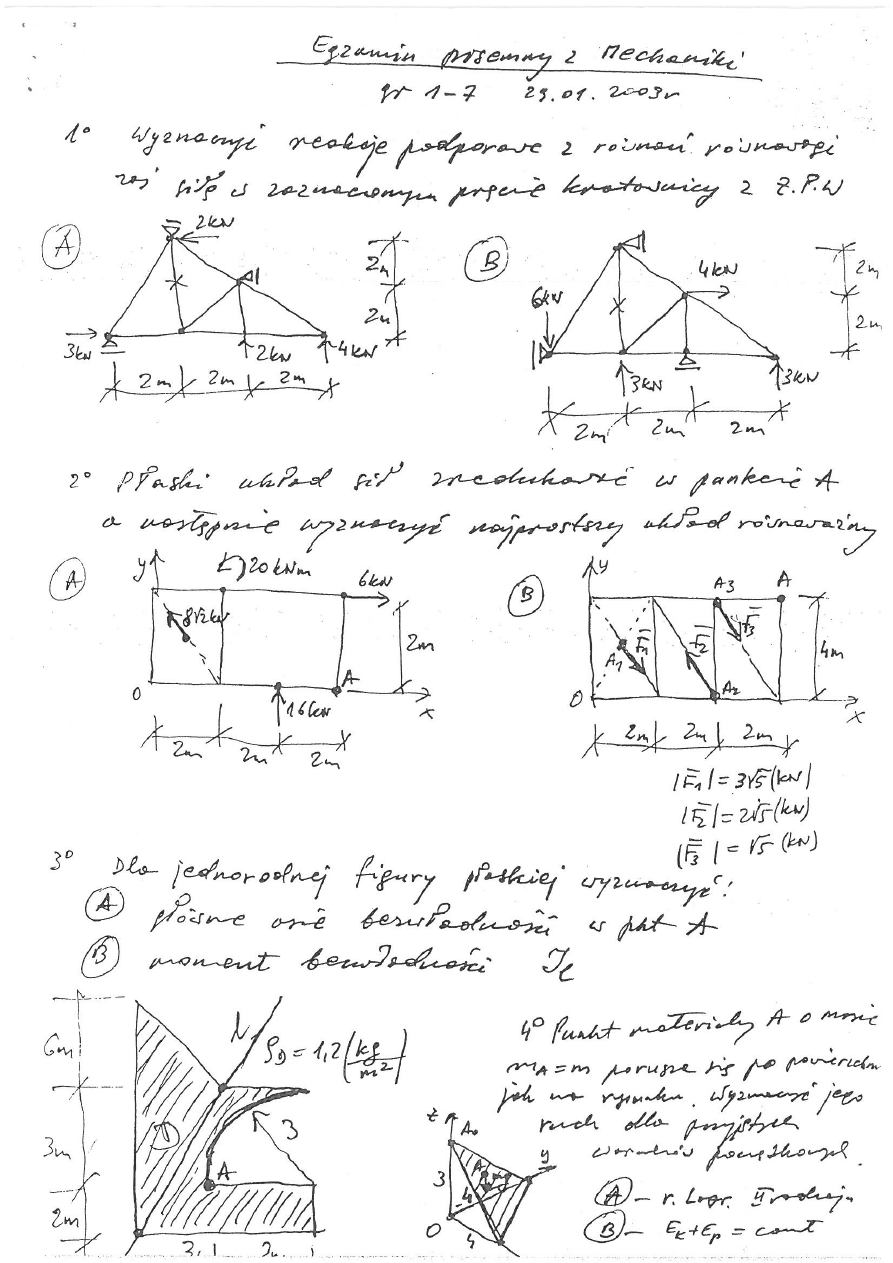 Egzamin pisemny z Mechaniki
gr 1-7 29.01.2003r
1° Wyznaczyć reakcje podporowe z równań równowagi
zaś siłę w zaznaczonym pręcie kratownicy z Z.P.W
A
2kN
3kN
2kN
4kN
2m
2m
2m
2m
2m
B
6kN
4kN
3kN
3kN
2m
2m
2m
2m
2m
2° Płaski układ sił zredukować w punkcie A
a następnie wyznaczyć najprostszy układ równoważny
A
y
20kNm
6kN
8√2kN
2m
0
A
16kN
x
2m
2m
2m
B
y
A3
A
A1
F1
F2
F3
4m
0
A2
x
2m
2m
2m
|F1| = 3√5 (kN)
|F2| = 2√5 (kN)
|F3| = √5 (kN)
3° Dla jednorodnej figury płaskiej wyznaczyć:
A główne osie bezwładności w pkt A
B moment bezwładności Il
6m
3m
2m
ρD = 1,2 (kg/m²)
D
3
A
4° Punkt materialny A o masie
mA = m porusza się po powierzchni
jak na rysunku. Wyznaczyć jego
ruch dla przyjętych
warunków początkowych.
z
A0
y
3
A
mg
4
0
4
A - r. Lagr. II rodzaju
B - Ek + Ep = const